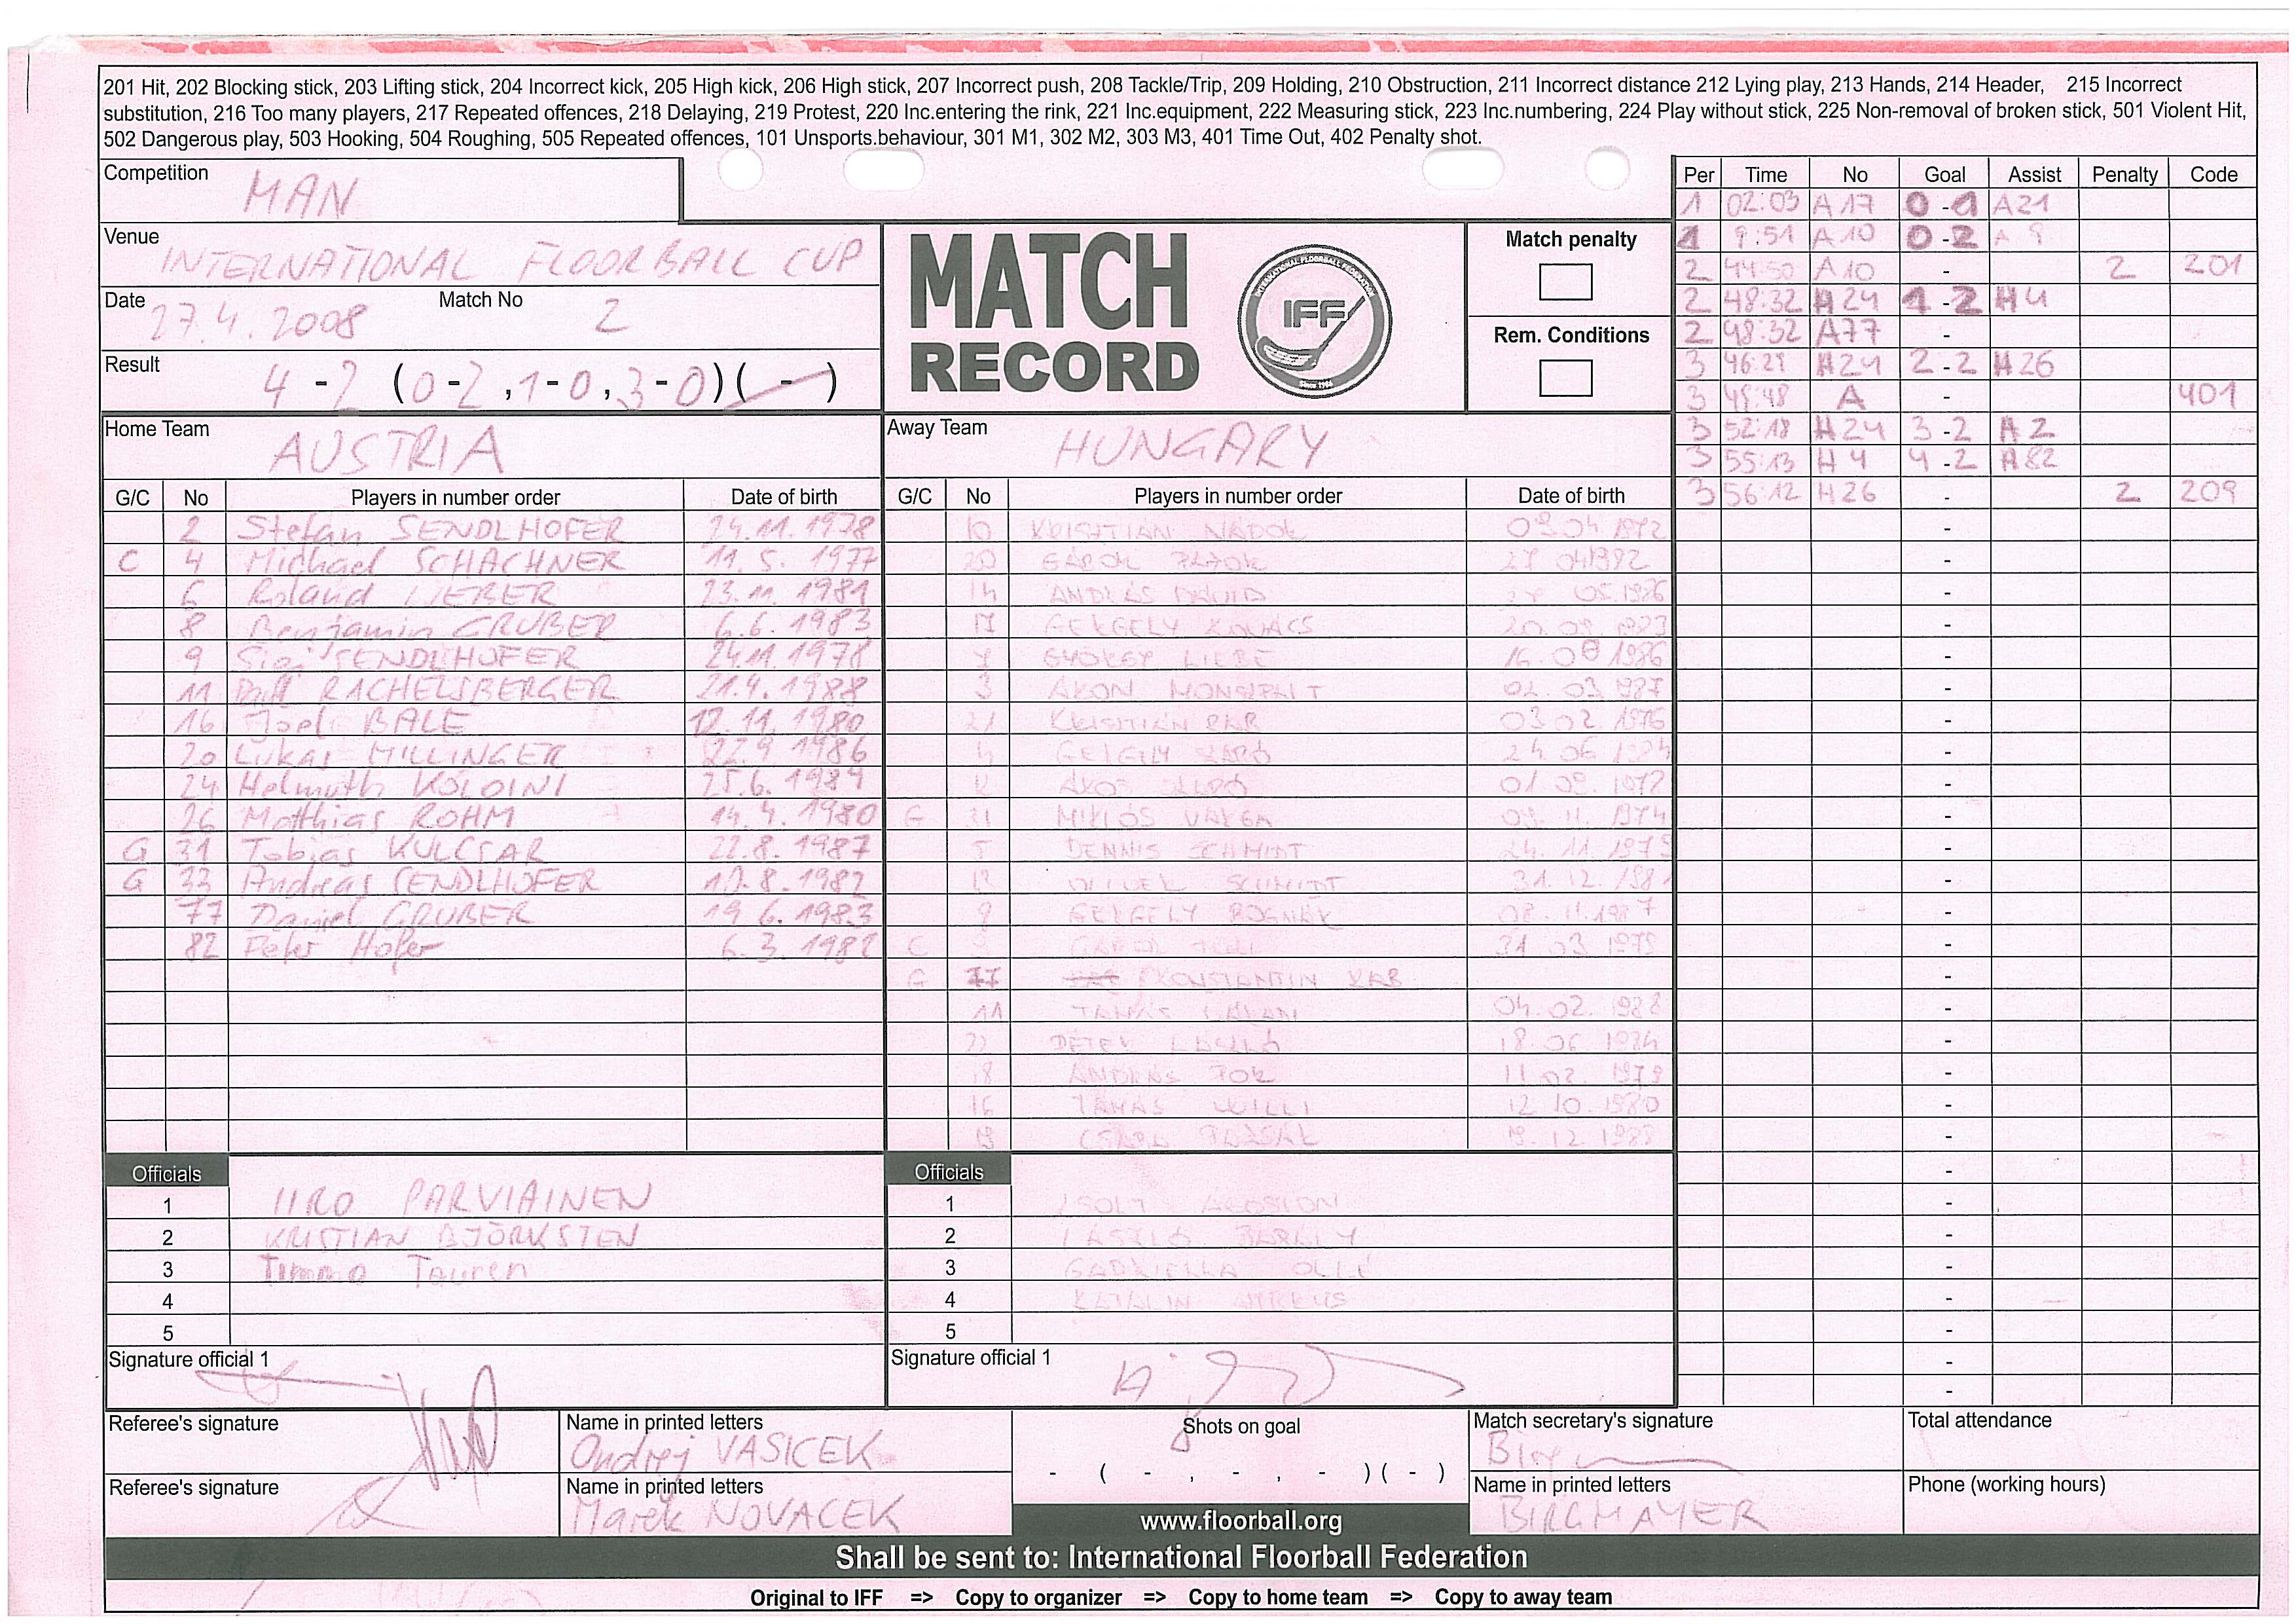 201 Hit, 202 Blocking stick, 203 Lifting stick, 204 Incorrect kick, 205 High kick, 206 High stick, 207 Incorrect push, 208 Tackle/Trip, 209 Holding, 210 Obstruction, 211 Incorrect distance 212 Lying play, 213 Hands, 214 Header, 215 Incorrect
substitution, 216 Too many players, 217 Repeated offences, 218 Delaying, 219 Protest, 220 Inc.entering the rink, 221 Inc.equipment, 222 Measuring stick, 223 Inc.numbering, 224 Play without stick, 225 Non-removal of broken stick, 501 Violent Hit,
502 Dangerous play, 503 Hooking, 504 Roughing, 505 Repeated offences, 101 Unsports.behaviour, 301 M1, 302 M2, 303 M3, 401 Time Out, 402 Penalty shot.
Competition MAN
Venue INTERNATIONAL FLOORBALL CUP
Date 27.4.2008 Match No 2
Result 4-2 (0-2, 1-0, 3-0) ( - )
MATCH
RECORD
INTERNATIONAL FLOORBALL FEDERATION
IFF
Since 1986
Match penalty
Rem. Conditions
Home Team AUSTRIA
Away Team HUNGARY
G/C No Players in number order Date of birth
2 Stefan SENDLHOFER 24.11.1978
C 4 Michael SCHACHNER 11.5.1977
6 Roland LIEBER 23.11.1981
8 Benjamin GRUBER 6.6.1983
9 Sigi SENDLHOFER 24.11.1978
11 RACHELSBERGER 21.4.1988
16 Joel BALE 12.11.1980
20 Lukas MILLINGER 22.9.1986
24 Helmuth KOLOINI 25.6.1984
26 Matthias ROHM 14.4.1980
G 31 Tobias KULCSAR 22.8.1987
G 33 Andreas SENDLHOFER 8.1982
77 Daniel GRUBER 19.6.1983
82 Peter Hofer 6.3.1982
G/C No Players in number order Date of birth
10 KRISZTIÁN 09 04 1972
20 GÁBOR 27 04 1982
14 ANDRÁS DÁVID 05.1986
17 GERGELY KOVÁCS
GYÖRGY LIEBE 16.08 1986
3 02.03.1987
21 KRISZTIÁN 03 02 1976
4 GERGELY 24 06
ÁKOS
G 31 MIKLÓS VARGA 11. 1974
DENNIS SCHMIDT 24.11.1975
OLIVER SCHMIDT 31.12.
9 GERGELY BOGNÁR 08.11.1987
C 31 03 1979
G 77 KONSTANTIN
11 TAMÁS 04.02.1988
LÁSZLÓ 18.06.1984
18 ANDRÁS 11.02.1979
16 TAMÁS WILLI 12 10.1980
19 19.12.1988
Officials
1 IIRO PARVIAINEN
2 KRISTIAN BJÖRKSTEN
3 Timmo Tauren
4
5
Signature official 1
Officials
1 ZSOLT
2 LÁSZLÓ
3 GABRIELLA OLLÉ
4 KATALIN
5
Signature official 1
Per Time No Goal Assist Penalty Code
1 02:03 A17 0-1 A21
1 9:51 A10 0-2 A9
2 44:50 A10 - 2 201
2 48:32 H24 1-2 H4
2 48:32 A77 -
3 46:29 H24 2-2 H26
3 48:48 A - 401
3 52:18 H24 3-2 H2
3 55:13 H4 4-2 H82
3 56:12 H26 - 2 209
Referee's signature
Name in printed letters Ondrej VASICEK
Referee's signature
Name in printed letters Marek NOVACEK
Shots on goal
- ( - , - , - ) ( - )
www.floorball.org
Match secretary's signature
Name in printed letters BIRGMAYER
Total attendance
Phone (working hours)
Shall be sent to: International Floorball Federation
Original to IFF => Copy to organizer => Copy to home team => Copy to away team